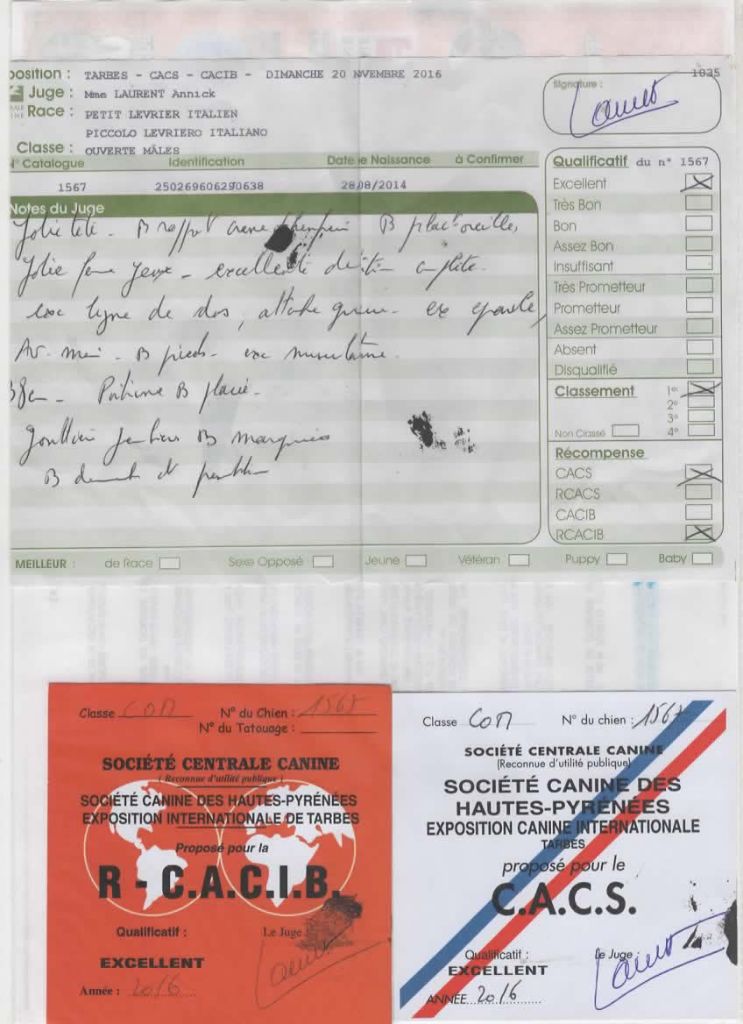 position : TARBES - CACS - CACIB - DIMANCHE 20 NVEMBRE 2016
1035
Juge : Mme LAURENT Annick
Signature :
Race : PETIT LEVRIER ITALIEN
PICCOLO LEVRIERO ITALIANO
Classe : OUVERTE MÂLES
N° Catalogue Identification Date de Naissance à Confirmer
1567 250269606290638 28/08/2014
Notes du Juge
Jolie tête - B rapport crane B plac oreille,
Jolie forme yeux - excellente dentition complète.
exc ligne de dos, attache queue - ex épaule,
Av. main - B pieds - exc musculature.
38cm - Poitrine B placée.
B marqués
B
Qualificatif du n° 1567
Excellent
Très Bon
Bon
Assez Bon
Insuffisant
Très Prometteur
Prometteur
Assez Prometteur
Absent
Disqualifié
Classement 1er
2e
3e
Non Classé 4e
Récompense
CACS
RCACS
CACIB
RCACIB
MEILLEUR : de Race Sexe Opposé Jeune Vétéran Puppy Baby
Classe COM N° du Chien : 1567
N° du Tatouage :
SOCIÉTÉ CENTRALE CANINE
( Reconnue d'utilité publique )
SOCIÉTÉ CANINE DES HAUTES-PYRÉNÉES
EXPOSITION INTERNATIONALE DE TARBES
Proposé pour la
R - C.A.C.I.B.
Qualificatif : Le Juge
EXCELLENT
Année : 2016
Classe COM N° du chien : 1567
SOCIÉTÉ CENTRALE CANINE
(Reconnue d'utilité publique)
SOCIÉTÉ CANINE DES
HAUTES-PYRÉNÉES
EXPOSITION CANINE INTERNATIONALE
TARBES
proposé pour le
C.A.C.S.
Qualificatif : Le Juge
EXCELLENT
ANNÉE 2016